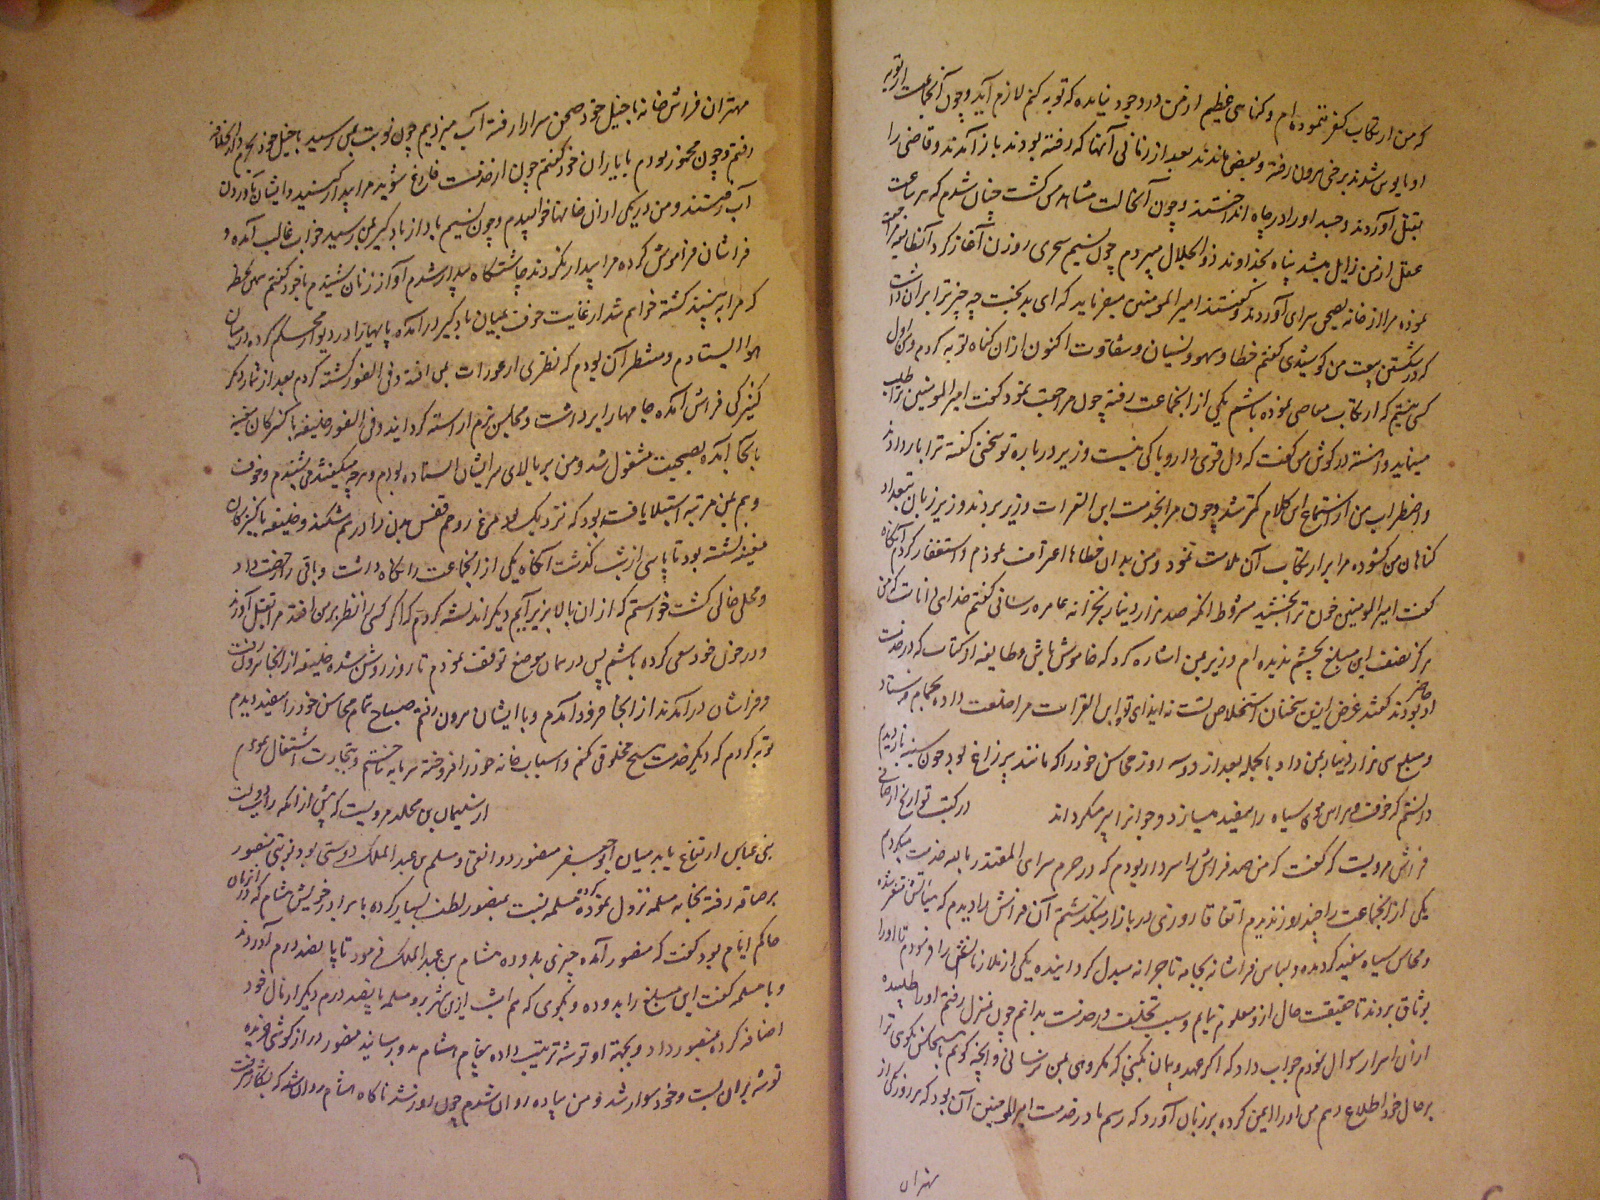 که من ارتکاب کفر ننموده‌ام و گناهی عظیم از من در وجود نیامده که توبه کنم لازم آید و چون آنجماعت از توبه
او مایوس شدند برخی بیرون رفته و بعضی ماندند بعد از زمانی آنها که رفته بودند باز آمدند و قاضی را
بقتل آوردند و جسد او را در چاه انداختند و چون آنحالت مشاهده من گشت چنان شدم که هر ساعت
عقل از من زایل میشد پناه بخداوند ذو الجلال میبردم چون نسیم سحری وزیدن آغاز کرد آنطایفه
نموده مرا از خانه بصحن سرای آوردند و گفتند امیر المومنین میفرماید که ای بدبخت چه چیز ترا بران داشت
که در شکستن بیعت من کوشیدی گفتم خطا و سهو و نسیان و شقاوت اکنون ازان گناه توبه کردم و من اول
کسی نیستم که ارتکاب معاصی نموده باشم یکی از آنجماعت رفته چون مراجعت نمود گفت امیر المومنین ترا طلب
مینماید و آهسته در گوش من گفت که دل قوی دار و باکی نیست وزیر در باره تو سخنی گفته ترا باز دادند
و اضطراب من از استماع این کلام کمتر شد و چون مرا بخدمت ابن الفرات وزیر بردند وزیر زبان بتعداد
گناهان من گشوده مرا بر ارتکاب آن ملامت نمود و من بدان خطاها اعتراف نمودم و استغفار کردم آنگاه
گفت امیر المومنین خون ترا بخشید مشروط آنکه صد هزار دینار بخزانه عامره رسانی گفتم خدای داناست که من
هرگز نصف این مبلغ بچشم ندیده ام وزیر بمن اشاره کرد که خاموش باش و طایفه از کتاب که در خدمت
او حاضر بودند گفتند غرض ازین سخنان استخلاص تست نه ایذای تو ابن الفرات مرا خلعت داده بحمام فرستاد
و مبلغ سی هزار دینار بمن داد بالجمله بعد از دو سه روز محاسن خود را که مانند پر زاغ بود چون سینه باز دیدم
دانستم که خوف و هراس موی سیاه را سفید میسازد و جوانرا پیر میگرداند در کتب تواریخ از خادم
فراش مرویست که گفت که من صد فراش را سردار بودم که در حرم سرای المقتدر بالله خدمت میکردم
یکی از آنجماعت را چند روز ندیدم اتفاقا روزی در بازار میگذشتم آن فراش را دیدم که هیاتش متغیر شده
و محاسن سیاه سفید گردیده و لباس فراشانه بجامه تاجرانه مبدل گردانیده یکی از ملازمانش را فرمودم تا او را
بوثاق بردند تا حقیقت حال ازو معلوم نمایم و سبب تخلف در خدمت بدانم چون بمنزل رفتم او را طلبیده
ازان اسرار سوال نمودم جواب داد که اگر عهد و پیمان بکنی که مکروهی بمن نرسانی و آنچه گویم با هیچکس نگوی ترا
بر حال خود اطلاع دهم من او را ایمن کرده بر زبان آورد که رسم ما در خدمت امیر المومنین آن بود که هر روز یکی از
مهتران
مهتران فراش‌خانه با خیل خود صحن سرا را رفته آب میزدیم چون نوبت بمن رسید با خیل خود بحرم دار الخلافه
رفتم و چون مخمور بودم با یاران خود گفتم چون از خدمت فارغ شوید مرا بیدار کنید و ایشان بآوردن
آب رفتند و من در یکی ازان خانها خوابیدم و چون نسیم باد از بادگیر بمن رسید خواب غالب آمده و
فراشان فراموش کرده مرا بیدار نکردند چاشتگاه بیدار شدم آواز زنان شنیدم با خود گفتم همین لحظه
که مرا ببینند کشته خواهم شد از غایت خوف بمیان بادگیر در آمده پایها را در دیوار محکم کرده در میان
هوا ایستادم و منتظر آن بودم که نظری از عورات بمن افتد و فی الفور کشته گردم بعد از نماز دگر
کنیزکی فراش آمده جامها را برداشت و مجلس بزم آراسته گردانیدند و فی الفور خلیفه با کنیزکان
بآنجا آمده بصحبت مشغول شد و من بر بالای سر ایشان ایستاده بودم و هرچه میگفتند می شنیدم و خوف
و بیم بمن مرتبه استیلا یافته بود که نزدیک بود مرغ روحم قفس بدن را درهم شکند و خلیفه با کنیزکان
نشسته بود تا پاسی از شب گذشت آنگاه یکی از آنجماعت را نگاه داشت و باقی را رخصت داد
و محل خالی گشت خواستم که ازان بالا بزیر آیم دیگر اندیشه کردم که اگر کسی را نظر بر من افتد مرا بقتل آورند
و در خون خود سعی کرده باشم پس در همان موضع توقف نمودم تا روز روشن شده خلیفه از آنجا بیرون رفت
و فراشان در آمدند از آنجا فرود آمدم و با ایشان بیرون رفتم صباح تمام محاسن خود را سفید دیدم
توبه کردم که دیگر خدمت هیچ مخلوقی نکنم و اسباب خانه خود را فروخته سرمایه ساختم و بتجارت اشتغال نمودم
از سلیمان بن مجلد مرویست که پیش از آنکه رایت دولت
بنی عباس ارتفاع یابد میان ابو جعفر منصور دوانقی و مسلمه بن عبد الملک دوستی بود نوبتی منصور
برصافه رفته بخانه مسلمه نزول نموده مسلمه نسبت بمنصور لطف بسیار کرده با برادر خویش هشام که در آنزمان
حاکم ایام بود گفت که منصور آمده چیزی بدو ده هشام بن عبد الملک فرمود تا پانصد درم آوردند
و با مسلمه گفت این مبلغ را بدو ده و بگوی که هم امشب ازین شهر برو مسلمه پانصد درم دیگر از مال خود
اضافه کرده بمنصور داد و بجهة او توشه ترتیب داده پیغام هشام بدو رسانید منصور دراز گوشی خریده
توشه بران بست و خود سوار شد و من پیاده روان شدم چون روز شد ناگاه هشام روان شد که بشکار میرفت